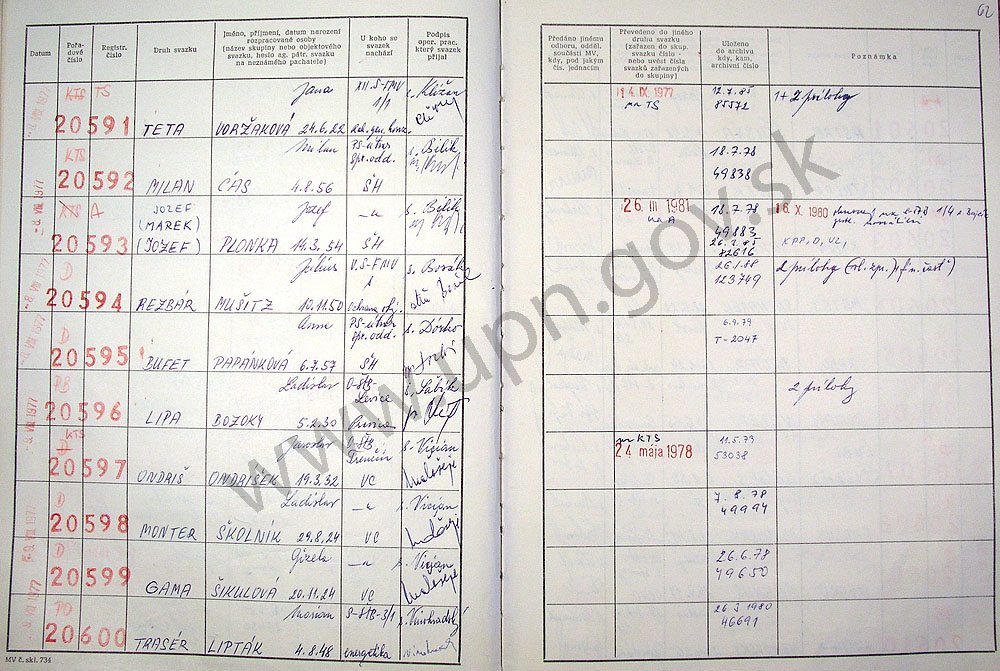 62
Datum
Pořadové číslo
Registr. číslo
Druh svazku
Jméno, příjmení, datum narození rozpracované osoby (název skupiny nebo objektového svazku, heslo ag. pátr. svazku na neznámého pachatele)
U koho se svazek nachází
Podpis oper. prac. který svazek přijal
Předáno jinému odboru, odděl. součásti MV, kdy, pod jakým čís. jednacím
Převedeno do jiného druhu svazku (zařazen do skup. svazku číslo - nebo uvést čísla svazků zařazených do skupiny)
Uloženo do archívu kdy, kam, archivní číslo
Poznámka
KTS TS
20591
TETA
Jana
VORŽÁKOVÁ 24.6.22
XII. S-FMV
1/1
s. Križan
14. IX. 1977
na TS
12.7.85
85572
1+2 prílohy
KTS
20592
MILAN
Milan
ČÁS 4.8.56
PS-útvar
spr. odd.
ŠH
s. Bilik
18.7.78
49838
KTS A
20593
JOZEF
(MAREK)
(JOZEF)
Jozef
PLONKA 14.3.54
-„-
ŠH
s. Bilik
26 III 1981
na A
18.7.78
49883
26.7.85
82616
16. X. 1980
1/4
KPP, D, VL,
D
20594
REZBÁR
Július
MUŠITZ 10.11.50
V. S-FMV
ochrana obj.
s. Borák
26.1.88
123749
2 prílohy
D
20595
BUFET
Anna
PAPÁNKOVÁ 6.7.57
PS-útvar
spr. odd.
ŠH
s. Dósko
6.9.79
T-2047
PO
20596
LIPA
Ladislav
BOZOKY 5.2.30
O-ŠtB-
Levice
s. Sabik
2 prílohy
KTS
D
20597
ONDRIŠ
Jaroslav
ONDRIŠEK 19.3.32
O-ŠtB
Trenčín
VC
s. Vician
na KTS
24 mája 1978
11.5.79
53038
D
20598
MONTER
Ladislav
ŠKOLNÍK 29.8.24
-„-
VC
s. Vician
7.8.78
49994
D
20599
GAMA
Gizela
ŠIKULOVÁ 20.11.24
-„-
VC
s. Vician
26.6.78
49650
PO
20600
TRASÉR
Marian
LIPTÁK 4.8.48
S-ŠtB-3/1
energetika
s. Vinohradský
26 I 1980
46691
MV č. skl. 734
www.upn.gov.sk